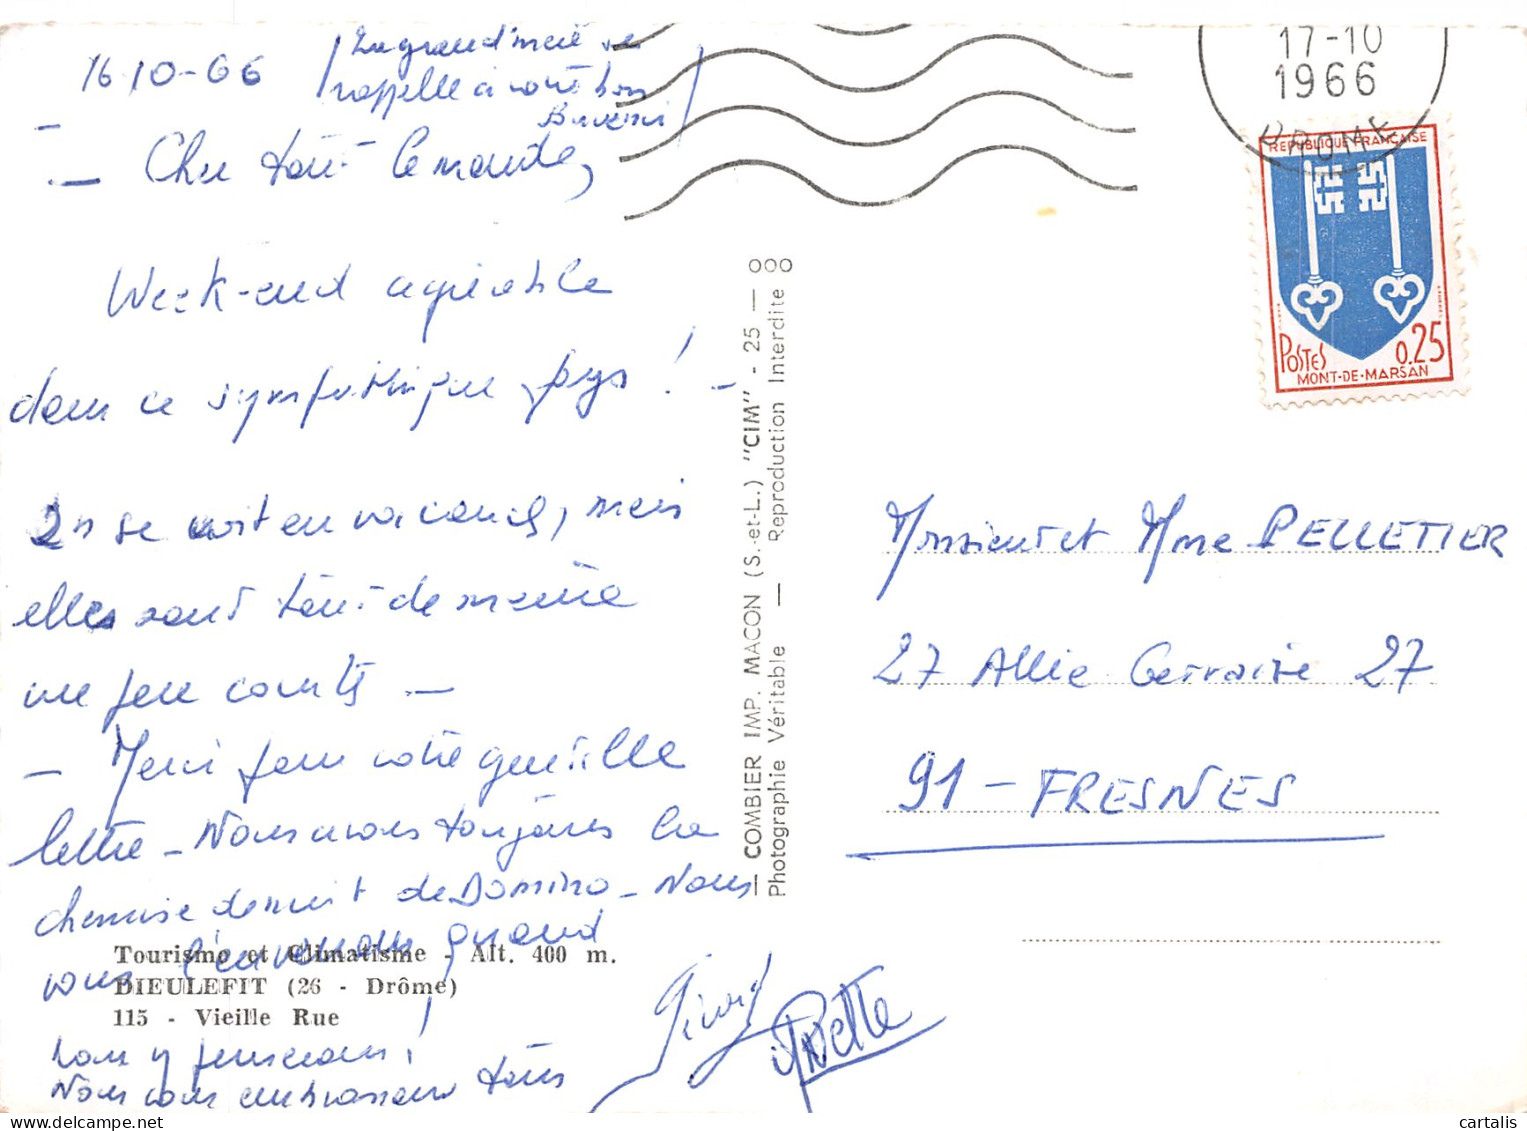 16-10-66
(La grand'mère se
rappelle à votre bon
souvenir)
— Cher tout le monde,
Week-end agréable
dans ce sympathique pays ! -
On se croit en vacances, mais
elles sont tout de même
un peu courtes —
— Merci pour votre gentille
lettre - Nous avons toujours la
chemise de nuit de Domino - Nous
vous l'enverrons quand
nous y penserons !
Nous vous embrassons tous
Gérard
Ginette
Tourisme et Climatisme - Alt. 400 m.
DIEULEFIT (26 - Drôme)
115 - Vieille Rue
COMBIER IMP. MACON (S.-et-L.) "CIM" - 25 — OOO
Photographie Véritable — Reproduction Interdite
17-10
1966
DROME
REPUBLIQUE FRANÇAISE
POSTES 0.25
MONT-DE-MARSAN
Monsieur et Mme PELLETIER
27 Allée Cerisaie 27
91 - FRESNES
cartalis